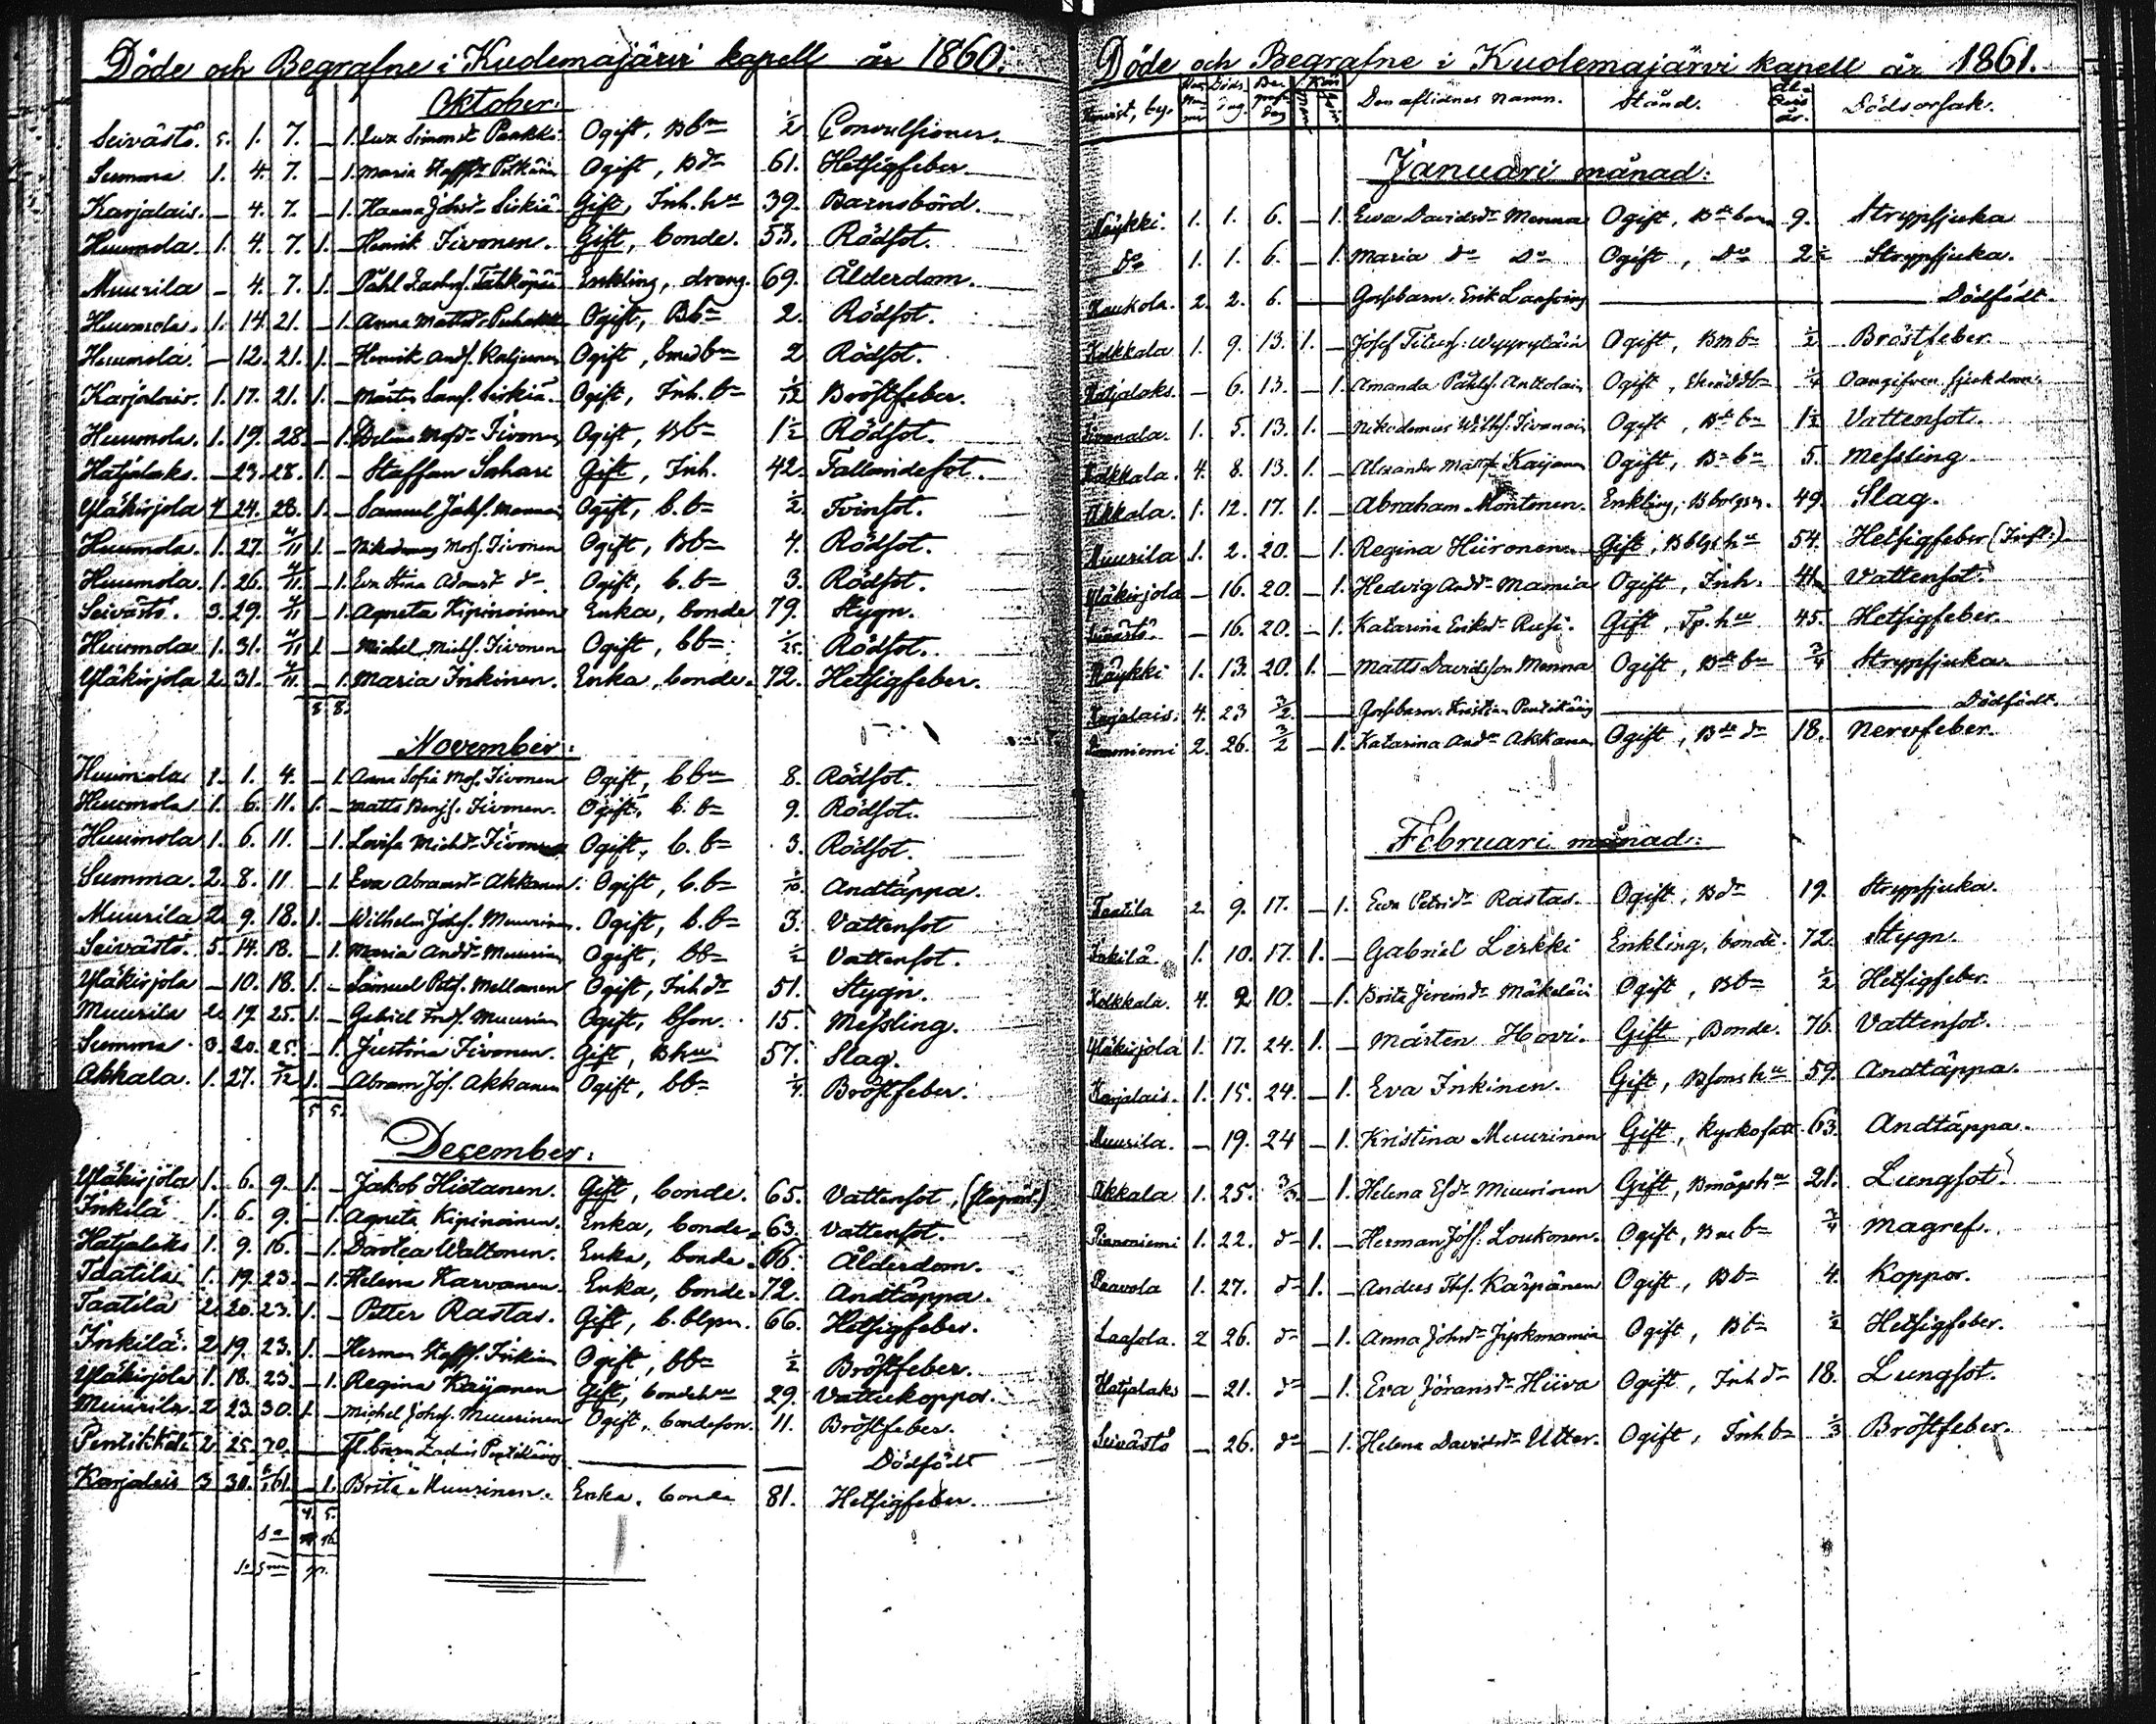 Döde och Begrafne i Kuolemajärvi kapell år 1860.
Oktober:
Seivästö. 5. 1. 7. – 1. Simonsd. Pankki Ogift, Bbn ½ Convulsioner.
Summa 1. 4. 7. – 1. Maria Staffsdr Pitkänin Ogift, Bdr 61. Hetsigfeber.
Karjalais. – 4. 7. – 1. Hanna Johsdr Siskiä Gift, Inh. hu 39. Barnsbörd.
Huumola. 1. 4. 7. 1. – Henrik Iivonen. Gift, bonde. 53. Rödsot.
Muurila – 4. 7. 1. – Påhl Zachrs. Enkling, dreng. 69. Ålderdom.
Huumola. 1. 14. 21. – 1. Anna Mattsdr Ogift, Bbn 2. Rödsot.
Huumola. – 12. 21. 1. – Henrik Ands. Ratjunen Ogift, Smedbn 2 Rödsot.
Karjalais. 1. 17. 21. 1. – Mårten Sams. Siskiä. Ogift, Inh. bn 1/12 Bröstfeber.
Huumola. 1. 19. 28. – 1. Mosdr Iivonen Ogift, Bbn 1½ Rödsot.
Hatjalaks. – 23. 28. 1. – Staffan Sahari Gift, Inh. 42. Fallandesot.
Yläkirjola 4 24. 28. 1. – Samuel Jaks. Ogift, b. bn ½ Tvinsot.
Huumola. 1. 27. 4/11 1. – Nikodemus Mos. Iivonen Ogift, Bbn 4. Rödsot.
Huumola. 1. 26. 4/11 – 1. Eva Stina Adamsd. do Ogift, b. bn 3. Rödsot.
Seivästö. 3. 29. 4/11 – 1. Agneta Kipinoinen Enka, bonde 79. Stygn.
Huumola 1. 31. 4/11 1. – Michel Michs. Iivonen Ogift, bbn 1/25. Rödsot.
Yläkirjola 2. 31. 4/11. – 1. Maria Inkinen. Enka, bonde. 72. Hetsigfeber.
8. 8.
November:
Huumola 1. 1. 4. – 1. Anna Sofia Mos. Iivonen Ogift, bbn 8. Rödsot.
Huumola 1. 6. 11. 1. – Matts Benjs. Iivonen. Ogift, b. bn 9. Rödsot.
Huumola 1. 6. 11. – 1. Lovisa Michdr Iivonen Ogift, b. bn 3. Rödsot.
Summa. 2. 8. 11 – 1. Eva Abramsdr Akkanen. Ogift, b. bn Andtäppa.
Muurila 2. 9. 18. 1. – Wilhelm Johs. Muurinen. Ogift, b. bn 3. Vattensot
Seivästö. 5. 14. 18. – 1. Maria Andr Muurinen Ogift, bbn ½ Vattensot.
Yläkirjola – 10. 18. 1. – Samuel Pets. Mellanen Ogift, Inhdr 51. Stygn.
Muurila 2. 17. 25. 1. – Gabriel Muurinen Ogift, bson. 15. Messling.
Summa 3. 20. 25. – 1. Justina Iivonen. Gift, Bhu 57. Slag.
Akkala. 1. 27. 2/12 1. – Abram Jos. Akkanen Ogift, bbn ¼ Bröstfeber.
5. 5.
December:
Yläkirjola 1. 6. 9. 1. – Jakob Hietanen. Gift, bonde. 65. Vattensot,
Inkilä 1. 6. 9. – 1. Agneta Kipinoinen. Enka, bonde. 63. Vattensot.
Hatjalaks 1. 9. 16. – 1. Darotea Waltonen. Enka, bonde. 66. Ålderdom.
Taatila 1. 19. 23. – 1. Helena Karvanen. Enka, bonde. 72. Andtäppa.
Taatila 2. 20. 23. 1. – Petter Rastas. Gift, b. blgsn. 66. Hetsigfeber.
Inkilä. 2 19. 23. 1. – Herman Staffs. Inkin Ogift, bbn ½ Bröstfeber.
Yläkirjola 1. 18. 23. – 1. Regina Kaijanen Gift, bondehu 29. Vattukoppor.
Muurila. 2 23. 30. 1. – Michel Johs. Muurinen Ogift, bondeson. 11. Bröstfeber.
Pentikkälä 2. 25. 30. — Fl. barn Dödfödt
Karjalais 3 30. 6/1 61. – 1. Brita Muurinen. Enka. bonde 81. Hetsigfeber.
4. 5.
Döde och Begrafne i Kuolemajärvi kapell år 1861.
Den aflidnes namn. Stånd. Dödsorsak.
Januari månad:
Näykki. 1. 1. 6. – 1. Ewa Davidsdr Menna Ogift, barn 9. Strypsjuka
do 1. 1. 6. – 1. Maria do do Ogift, do 2½ Strypsjuka.
Kaukola. 2. 2. 6. — Gossebarn. Erik Dödfödt.
Kolkkala 1. 9. 13. 1. – Josef Ogift, Bmbn ½ Bröstfeber.
Hatjalaks. – 6. 13. – 1. Amanda Påhls. Anttolain Ogift, ¼ Oangifven sjukdom.
1. 5. 13. 1. – Nikodemus Wilhs. Iivonain Ogift, bn 1½ Vattensot.
Kolkkala. 4. 8. 13. 1. – Alexander Matts. Kaijanen Ogift, bn 5. Messling
Akkala. 1. 12. 17. 1. – Abraham Montonen. Enkling, Bbolgsm. 49. Slag.
Muurila 1. 2. 20. – 1. Regina Hiironen. Gift, Bblgs hu 54. Hetsigfeber (Infl.)
Yläkirjola – 16. 20. – 1. Hedvig Andr Mamia Ogift, Inh. 41. Vattensot.
Seivästö. – 16. 20. – 1. Katarina Eriksdr Rusi. Gift, Tp. hu 45. Hetsigfeber.
Näykki 1. 13. 20. 1. – Matts Davidsson Menna Ogift, bn ¾ Strypsjuka.
Karjalais. 4. 23 3/2. — Gossebarn. Kristian Dödfödt.
2. 26. 3/2 – 1. Katarina Andr Akkanen Ogift, dr 18. Nervfeber.
Februari månad:
Taatila 2. 9. 17. – 1. Ewa Petridr Rastas. Ogift, Bdr 19. Strypsjuka.
Inkilä. 1. 10. 17. 1. – Gabriel Lerkki Enkling, bonde. 72. Stygn.
Kolkkala. 4. 2 10. – 1. Brita Jeremdr Mäkeläin Ogift, Bbn ½ Hetsigfeber.
Yläkirjola 1. 17. 24. 1. – Mårten Hovi. Gift, Bonde. 76. Vattensot.
Karjalais. 1. 15. 24. – 1. Eva Inkinen. Gift, Bsons hu 59. Andtäppa.
Muurila. – 19. 24 – 1. Kristina Muurinen Gift, Kyrkofatt. 63. Andtäppa.
Akkala 1. 25. 3/3 – 1. Helena Esdr Muurinen Gift, Bmågs hu 21. Lungsot.
1. 22. do 1. – Herman Johs. Loukonen. Ogift, bn ¾ Magref.
Paavola 1. 27. do 1. – Anders Ths. Karpanen Ogift, Bbn 4. Koppor.
Laasola. 2 26. do – 1. Anna Johsdr Ogift, Bbn ½ Hetsigfeber.
Hatjalaks – 21. do – 1. Eva Göransdr Hiiva Ogift, Inhdr 18. Lungsot.
Seivästö – 26. do – 1. Helena Davidsdr Utter. Ogift, Inhbn ⅓ Bröstfeber.